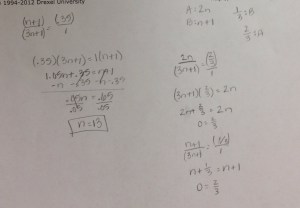 1994-2012 Drexel University
(n+1) = (.35)
(3n+1) 1
(.35)(3n+1)=1(n+1)
1.05n+.35=n+1
-n -.35 -n -.35
.05n = .65
.05 .05
n=13
A=2n
B=n+1
2n
(3n+1)
(3n+1)(2/3)=2n
2n+2/3=2n
0=2/3
n+1 = (1/3)
(3n+1) 1
n+1/3=n+1
0=2/3